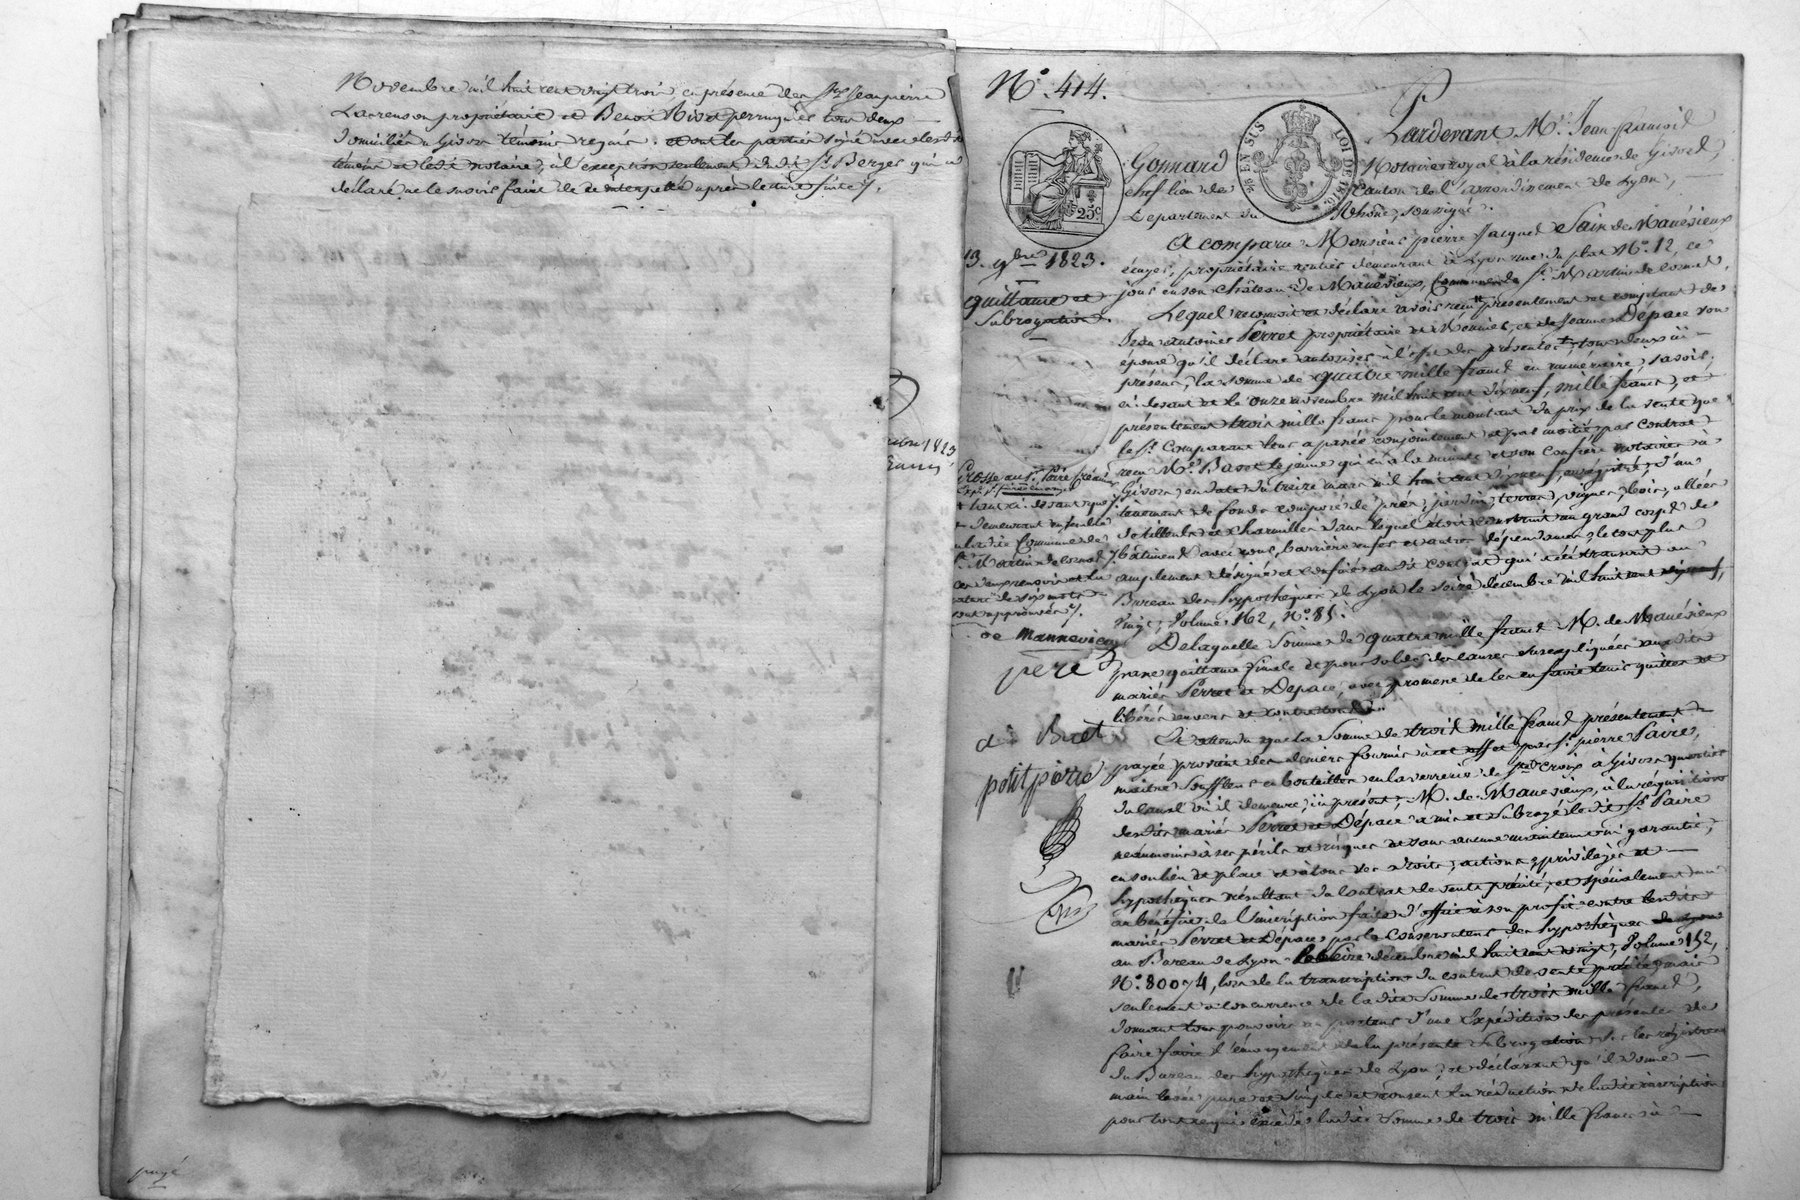 Novembre mil huit cent vingt trois en présence des Srs Jeanpierre
propriétaire et Benoit perruquier tous deux
domiciliés à Givors témoins requis. et ont les parties signé avec lesdits
témoins et ledit notaire, à l'exception seulement dudit Sr Berger qui a
déclaré ne le savoir faire de ce interpellé après lecture faite /.
payé
N.° 414.
EN SUS LOI DE 1816
25.c
Pardevant M.e Jean françois
Gonnard Notaire royal à la résidence de Givors,
chef lieu de Canton de l'arrondissement de Lyon,
Département du Rhône, soussigné.
13. 9bre 1823.
quittance et
Subrogation.
A comparu Monsieur pierre Jacques Sain de Manévieux
écuyer, propriétaire rentier demeurant à Lyon rue du plat N.° 12, ce
jour en son château de Manévieux, Commune de St. Martin de Cornas,
Lequel reconnoit et déclare avoir reçu présentement et comptant de
Jean antoine Perret propriétaire et et de Jeanne Dépace son
épouse qu'il déclare autoriser à l'effet des présentes, tous deux ici
présens, la somme de quatre mille francs en numéraire, savoir:
ci-devant et le onze novembre mil huit cent dix neuf, mille francs, et
présentement trois mille francs pour le montant du prix de la vente que
le Sr. Comparant leur a passée conjointement et par moitié, par contrat
reçu M.e Basset le jeune qui en a la minute et son confrère notaires à
Givors, en date du treize mars mil huit cent dix neuf, enregistré, d'un
tenement de fonds composé de prés, jardin, terres, vignes, bois, allées
de tilleuls et charmilles dans lequel étoit construit un grand corps de
bâtiment avec cour, barrière en fer et autres dépendances, le tout plus
amplement désigné et confiné audit contrat qui a été transcrit au
Bureau des hypothèques de Lyon le seize décembre mil huit cent dix neuf,
vingt, Volume 162, N.° 81.
Grosse au Sr. Paire
demeurant ensemble
en ladite Commune de
St. Martin de Cornas /.
sont approuvés /.
de Mannevieu
pere
Delaquelle Somme de quatre mille francs M. de Manévieux
passe quittance finale et pour solde des causes susexpliquées auxdits
mariés Perret et Dépace, avec promesse de les en faire tenir quittes et
libérés envers et contre tous.
di Buet
petit pierre
Et attendu que la Somme de trois mille francs présentement
payée provient des deniers fournis à cet effet par Sr. pierre Paire,
maitre Souffleur en bouteilles en la verrerie de Ste. Croix à Givors quartier
du canal où il demeure, ici présent, M. de Manévieux, à la réquisition
desdits mariés Perret et Dépace a mis et subrogé ledit Sr. Paire
néanmoins à ses périls et risques et sans aucune maintenue ni garantie,
en son lieu et place et à tous ses droits, actions, privilèges et
hypothèques résultant du contrat de vente précité, et spécialement
au bénéfice de l'inscription faite d'office à son profit contre lesdits
mariés Perret et Dépace, par le Conservateur des hypothèques
au Bureau de Lyon le seize décembre mil huit cent vingt, Volume 152,
N.° 80074, lors de la transcription du contrat de vente précité, mais
seulement à concurrence de ladite Somme de trois mille francs,
donnant tous pouvoirs au porteur d'une Expédition des présentes de
faire faire l'émargement de la présente Subrogation sur les registres
du Bureau des hypothèques de Lyon, et déclarant qu'il donne
main levée pure et simple et consent la réduction de ladite inscription
pour tout ce qui excède ladite Somme de trois mille francs à